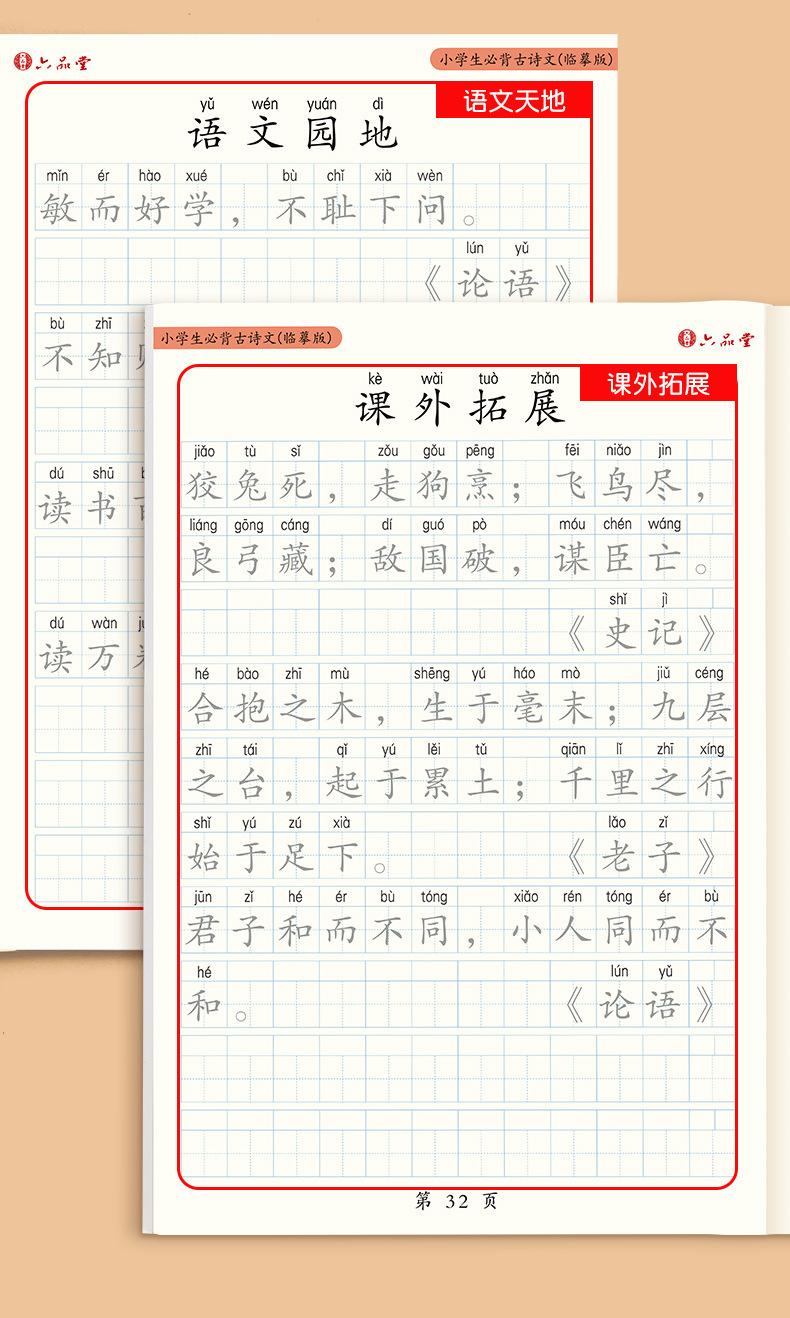 六品堂
小学生必背古诗文(临摹版)
语文天地
yǔ wén yuán dì
语文园地
mǐn ér hào xué bù chǐ xià wèn
敏而好学，不耻下问。
lún yǔ
《论语》
bù zhī
不知
dú shū
读书
dú wàn
读万
小学生必背古诗文(临摹版)
六品堂
课外拓展
kè wài tuò zhǎn
课外拓展
jiǎo tù sǐ zǒu gǒu pēng fēi niǎo jìn
狡兔死，走狗烹；飞鸟尽，
liáng gōng cáng dí guó pò móu chén wáng
良弓藏；敌国破，谋臣亡。
shǐ jì
《史记》
hé bào zhī mù shēng yú háo mò jiǔ céng
合抱之木，生于毫末；九层
zhī tái qǐ yú lěi tǔ qiān lǐ zhī xíng
之台，起于累土；千里之行
shǐ yú zú xià lǎo zǐ
始于足下。《老子》
jūn zǐ hé ér bù tóng xiǎo rén tóng ér bù
君子和而不同，小人同而不
hé lún yǔ
和。《论语》
第 32 页